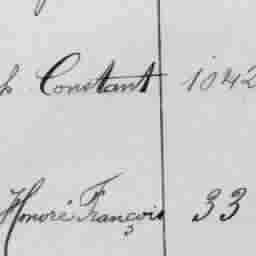 h Constant 1042
Honoré François 33